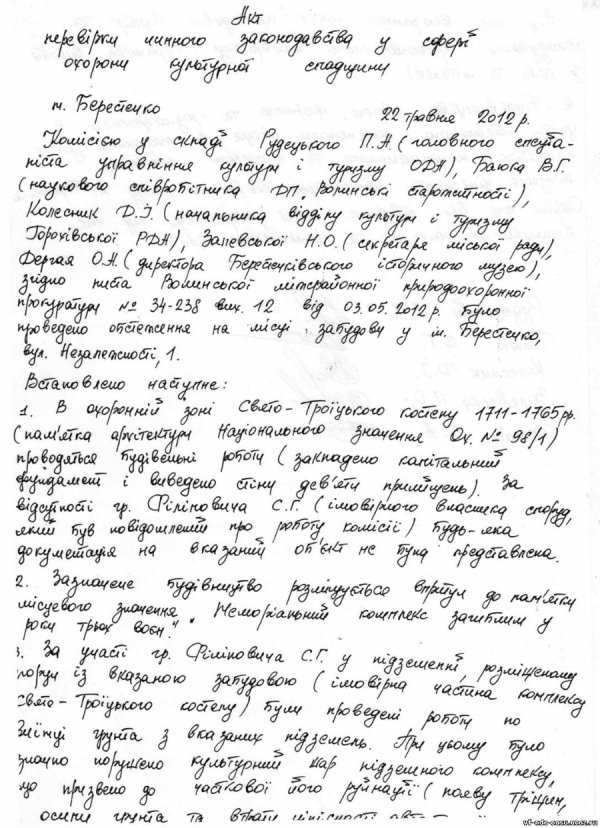 Акт
перевірки чинного законодавства у сфері
охорони культурної спадщини
м. Берестечко
22 травня 2012 р.
Комісією у складі Рудецького П.А. (головного спеціа-
ліста управління культури і туризму ОДА), Баюка В.Г.
(наукового співробітника ДП „Волинські старожитності),
Колесник Д.І. (начальника відділу культури і туризму
Горохівської РДА), Залевської Н.О. (секретаря міської ради),
Дергая О.А. (директора Берестечківського історичного музею),
згідно листа Волинської міжрайонної природоохоронної
прокуратури № 34-238 вих. 12 від 03.05.2012 р. було
проведено обстеження на місці забудови у м. Берестечко,
вул. Незалежності, 1.
Встановлено наступне:
1. В охоронній зоні Свято-Троїцького костелу 1711-1765 рр.
(пам'ятка архітектури Національного значення Ох. № 98/1)
проводяться будівельні роботи (закладено капітальний
фундамент і виведено стіну дев'яти приміщень). За
відсутності гр. Філіповича С.Г. (імовірного власника споруд,
який був повідомлений про роботу комісії) будь-яка
документація на вказаний об'єкт не була представлена.
2. Зазначене будівництво розміщується впритул до пам'ятки
місцевого значення "Меморіальний комплекс загиблим у
роки трьох воєн".
3. За участі гр. Філіповича С.Г. у підземеллі, розміщеному
поруч із вказаною забудовою (імовірна частина комплексу
Свято-Троїцького костелу) були проведені роботи по
виїмці грунта з вказаних підземель. При цьому було
значно порушено культурний шар підземного комплексу,
що призвело до часткової його руйнації (появу тріщин,
осипи грунта та втрати цілісності
vf-adc-casu.ucoz.ru